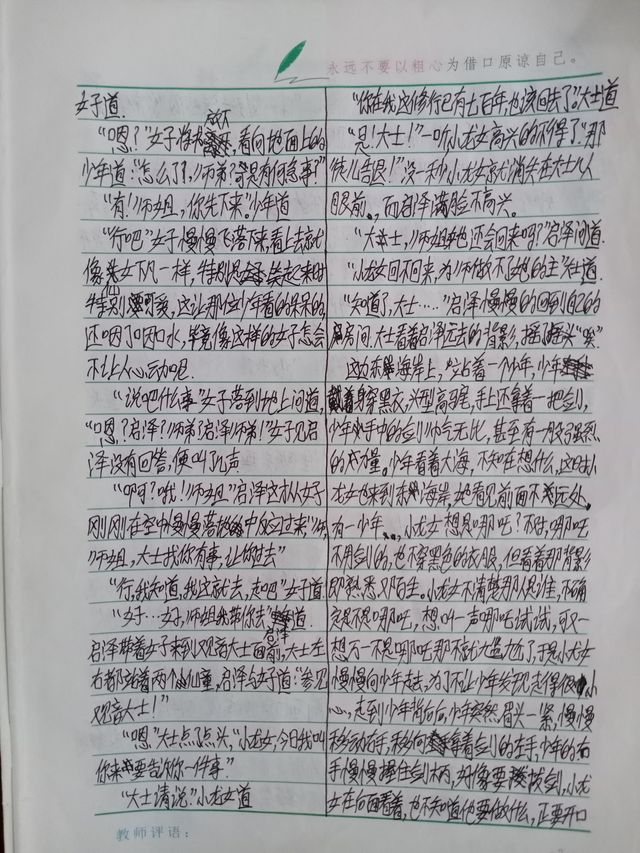 永远不要以粗心为借口原谅自己。
女子道.
放下
“嗯?”女子像,看向地面上的
少年道:“怎么了?师弟?是有何急事?”
“有!师姐,你先下来”少年道
“行吧”女子慢慢飞落下来看上去就
像天女下凡一样,特别是笑起来时
特别可爱,这让那位少年看的呆呆的
还咽了口口水,毕竟像这样的女子怎会
不让人心动呢.
“说吧什么事”女子落到地上问道,
“嗯?启泽?师弟!启泽师弟!”女子见启
泽没有回答,便叫了几声
“啊?哦!师姐”启泽这才从女子
刚刚在空中慢慢落地中反应过来,“师,
师姐,大士找你有事,让你过去”
“行,我知道,我这就去,走吧”女子道.
“好…好,师姐我带你去”道
启泽
启泽带着女子来到观音大士面前,大士左
右都站着两个儿童,启泽与女子道:“参见
观音大士!”
“嗯”大士点了点头,“小龙女,今日我叫
你来要告诉你一件事.”
“大士请说”小龙女道
“你在我这修行已有七百年,也该回去了.”大士道
“是!大士!”一听小龙女高兴的不得了,“那
徒儿告退!”没一秒小龙女就消失在大士
眼前.,而启泽满脸不高兴。
“大士,师姐也还会回来吗?”启泽问道.
“小龙女回不回来,为师做不了她的主”大士道.
“知道了,大士……”启泽慢慢的回到自己的
房间,大士看着启泽远去的背影,摇了摇头“唉”
这边东海岸上,站着一个少年,少年
身穿黑衣,头型高马尾,手上还拿着一把剑,
少年手中的剑帅气无比,甚至有一股强烈
的力量。少年看着大海,不知在想什么,这时小
龙女也来到东海岸,她看见前面不远处,
有一少年.,小龙女想是哪吒?不对,哪吒
不用剑的,也不穿黑色的衣服,但看着那背影
即熟悉又陌生.小龙女不清楚那人是谁,不确
定是不是哪吒,想叫一声哪吒试试,可又
想万一不是哪吒那不就尴尬了,于是小龙女
慢慢向少年走去,为了不让少年发现走得很小
心,走到少年背后后,少年突然眉头一紧,慢慢
移动右手,移向拿着剑的左手,少年的右
手慢慢握住剑柄,好像要拔剑,小龙
女在后面看着,也不知道他要做什么,正要开口
教师评语: